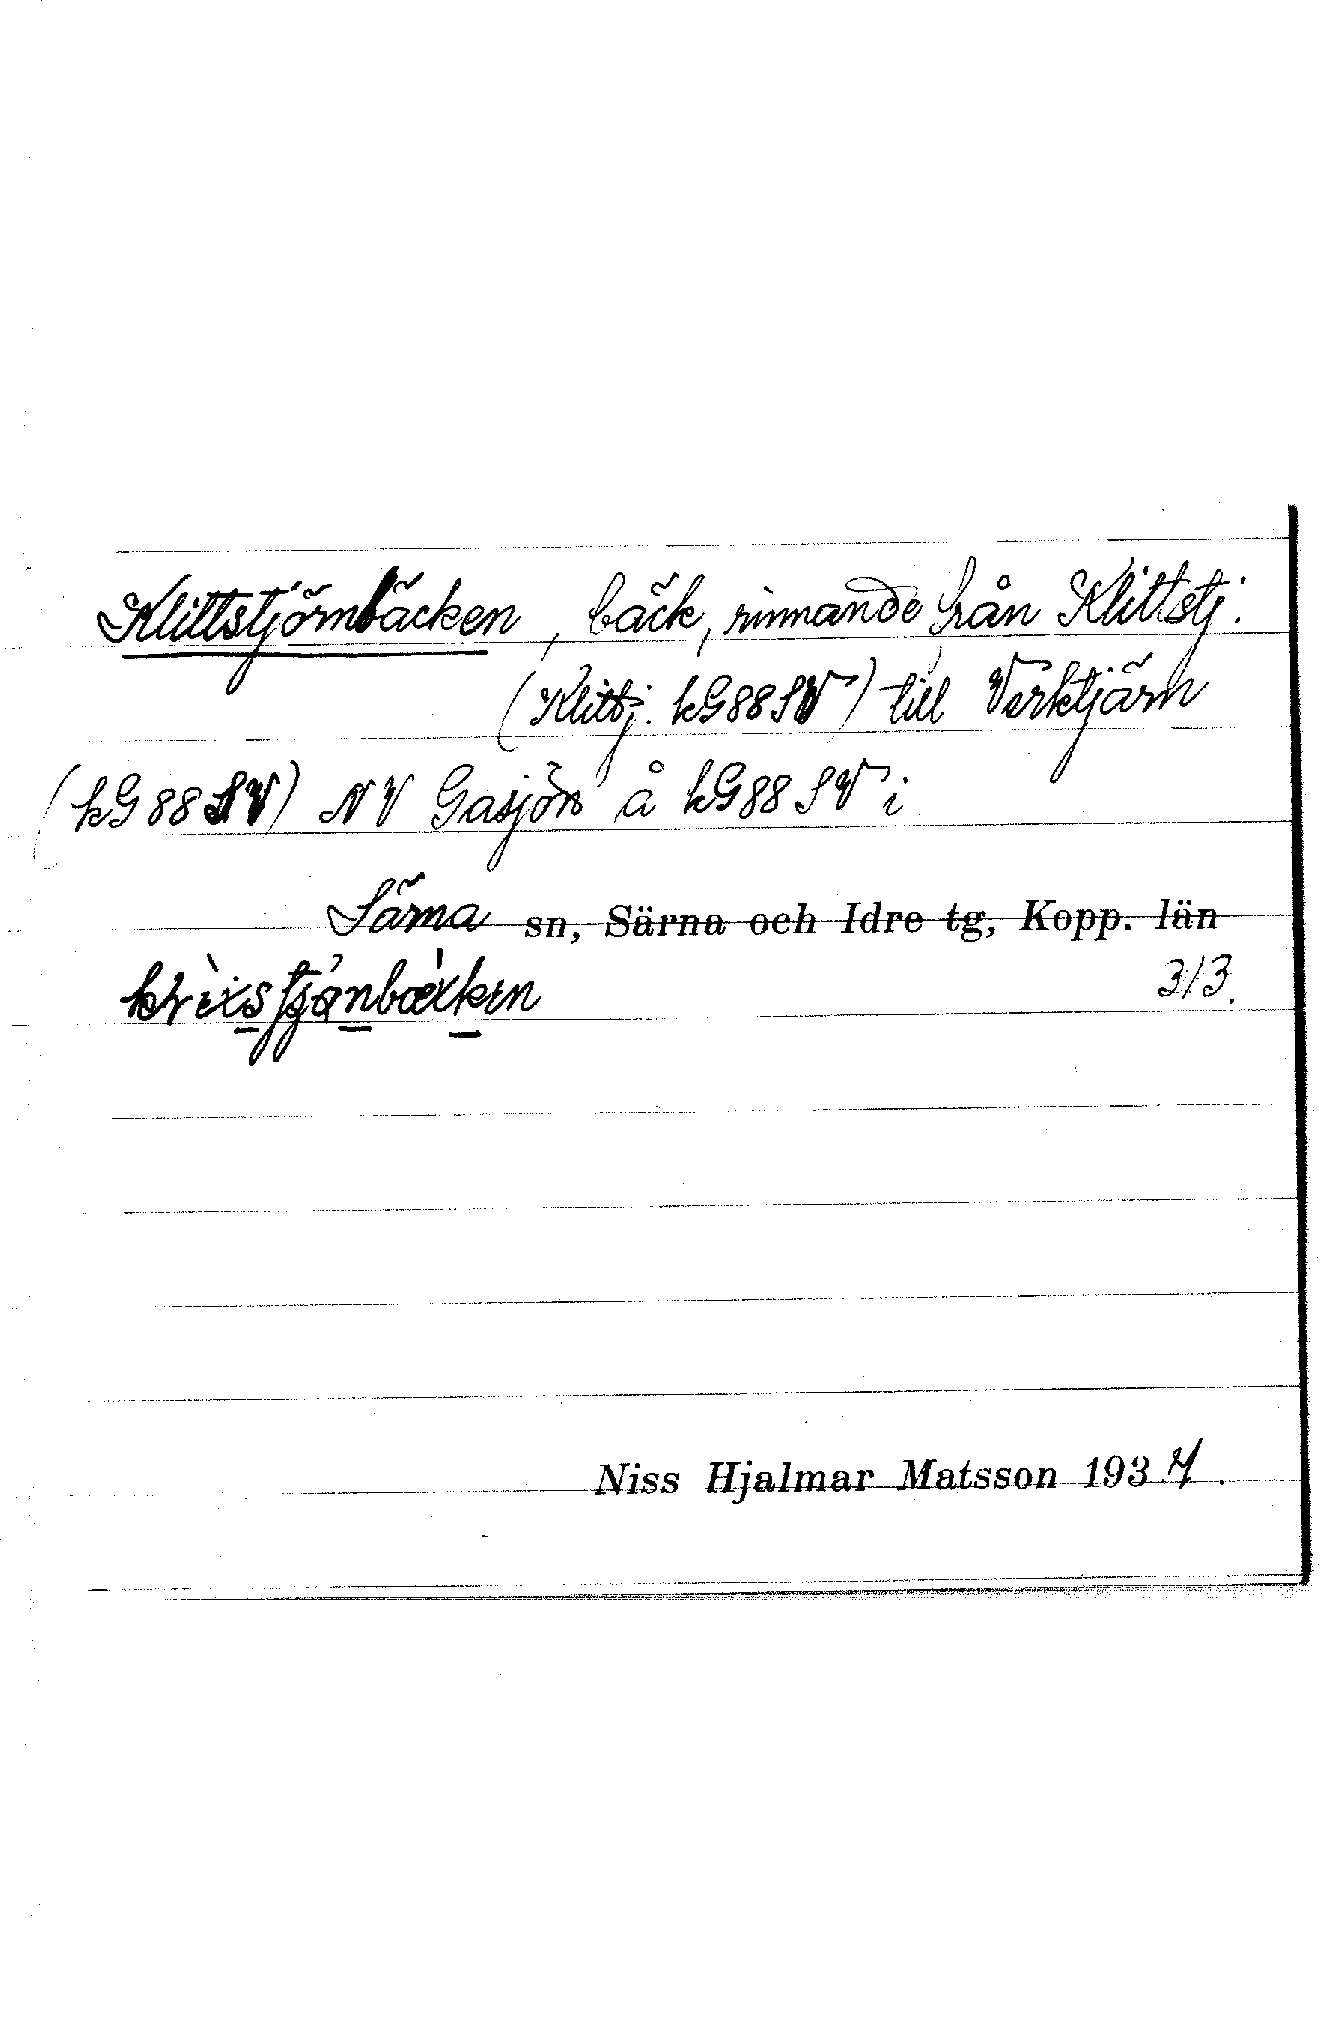 Klittstjörnbäcken, bäck, rinnande från Klittstj.
(Klittj. kG88SV) till Verktjärn
(kG88SV) NV Gasjön å kG88SV i
Särna sn, Särna och Idre tg, Kopp. län
313.
Niss Hjalmar Matsson 1934.